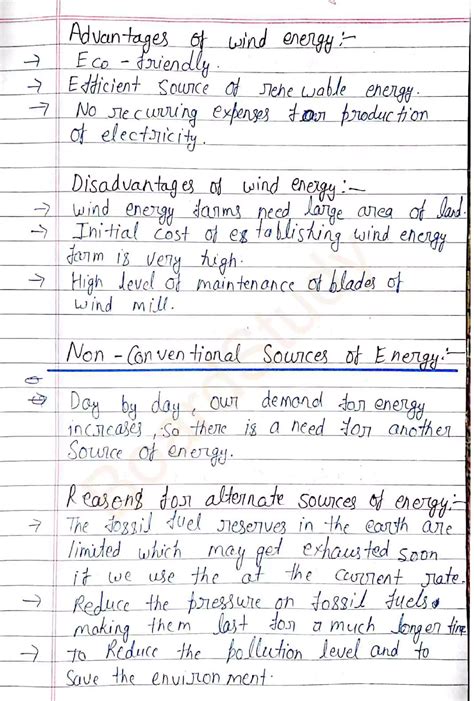 Advantages of wind energy:-
→ Eco-friendly.
→ Efficient Source of renewable energy.
→ No recurring expenses for production
of electricity.
Disadvantages of wind energy:-
→ wind energy farms need large area of land.
→ Initial cost of establishing wind energy
farm is very high.
→ High level of maintenance of blades of
wind mill.
Non-Conventional Sources of Energy:-
→ Day by day, our demand for energy
increases, so there is a need for another
Source of energy.
Reasons for alternate sources of energy:-
→ The fossil fuel reserves in the earth are
limited which may get exhausted soon
if we use the at the current rate.
→ Reduce the pressure on fossil fuels.
making them last for a much longer time
→ to Reduce the pollution level and to
save the environment.